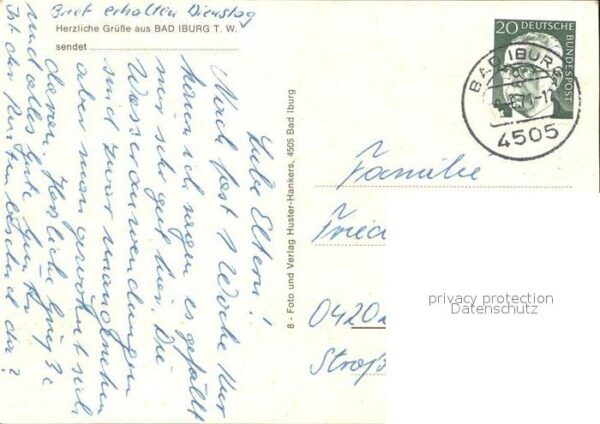 Brief erhalten Dienstag
Herzliche Grüße aus BAD IBURG T. W.
sendet
Liebe Eltern!
Nach fast 1 Woche Kur
kann ich sagen es gefällt
mir sehr gut hier. Die
Wasseranwendungen
sind zwar unangenehm
aber man gewöhnt sich
daran. Herzliche Grüße
und alles Gute
Ist der Kurtenbescheid da?
8 - Foto und Verlag Huster-Hankers, 4505 Bad Iburg
20 DEUTSCHE
BUNDESPOST
BAD IBURG
4505
Familie
Fried
0420
Straß
privacy protection
Datenschutz